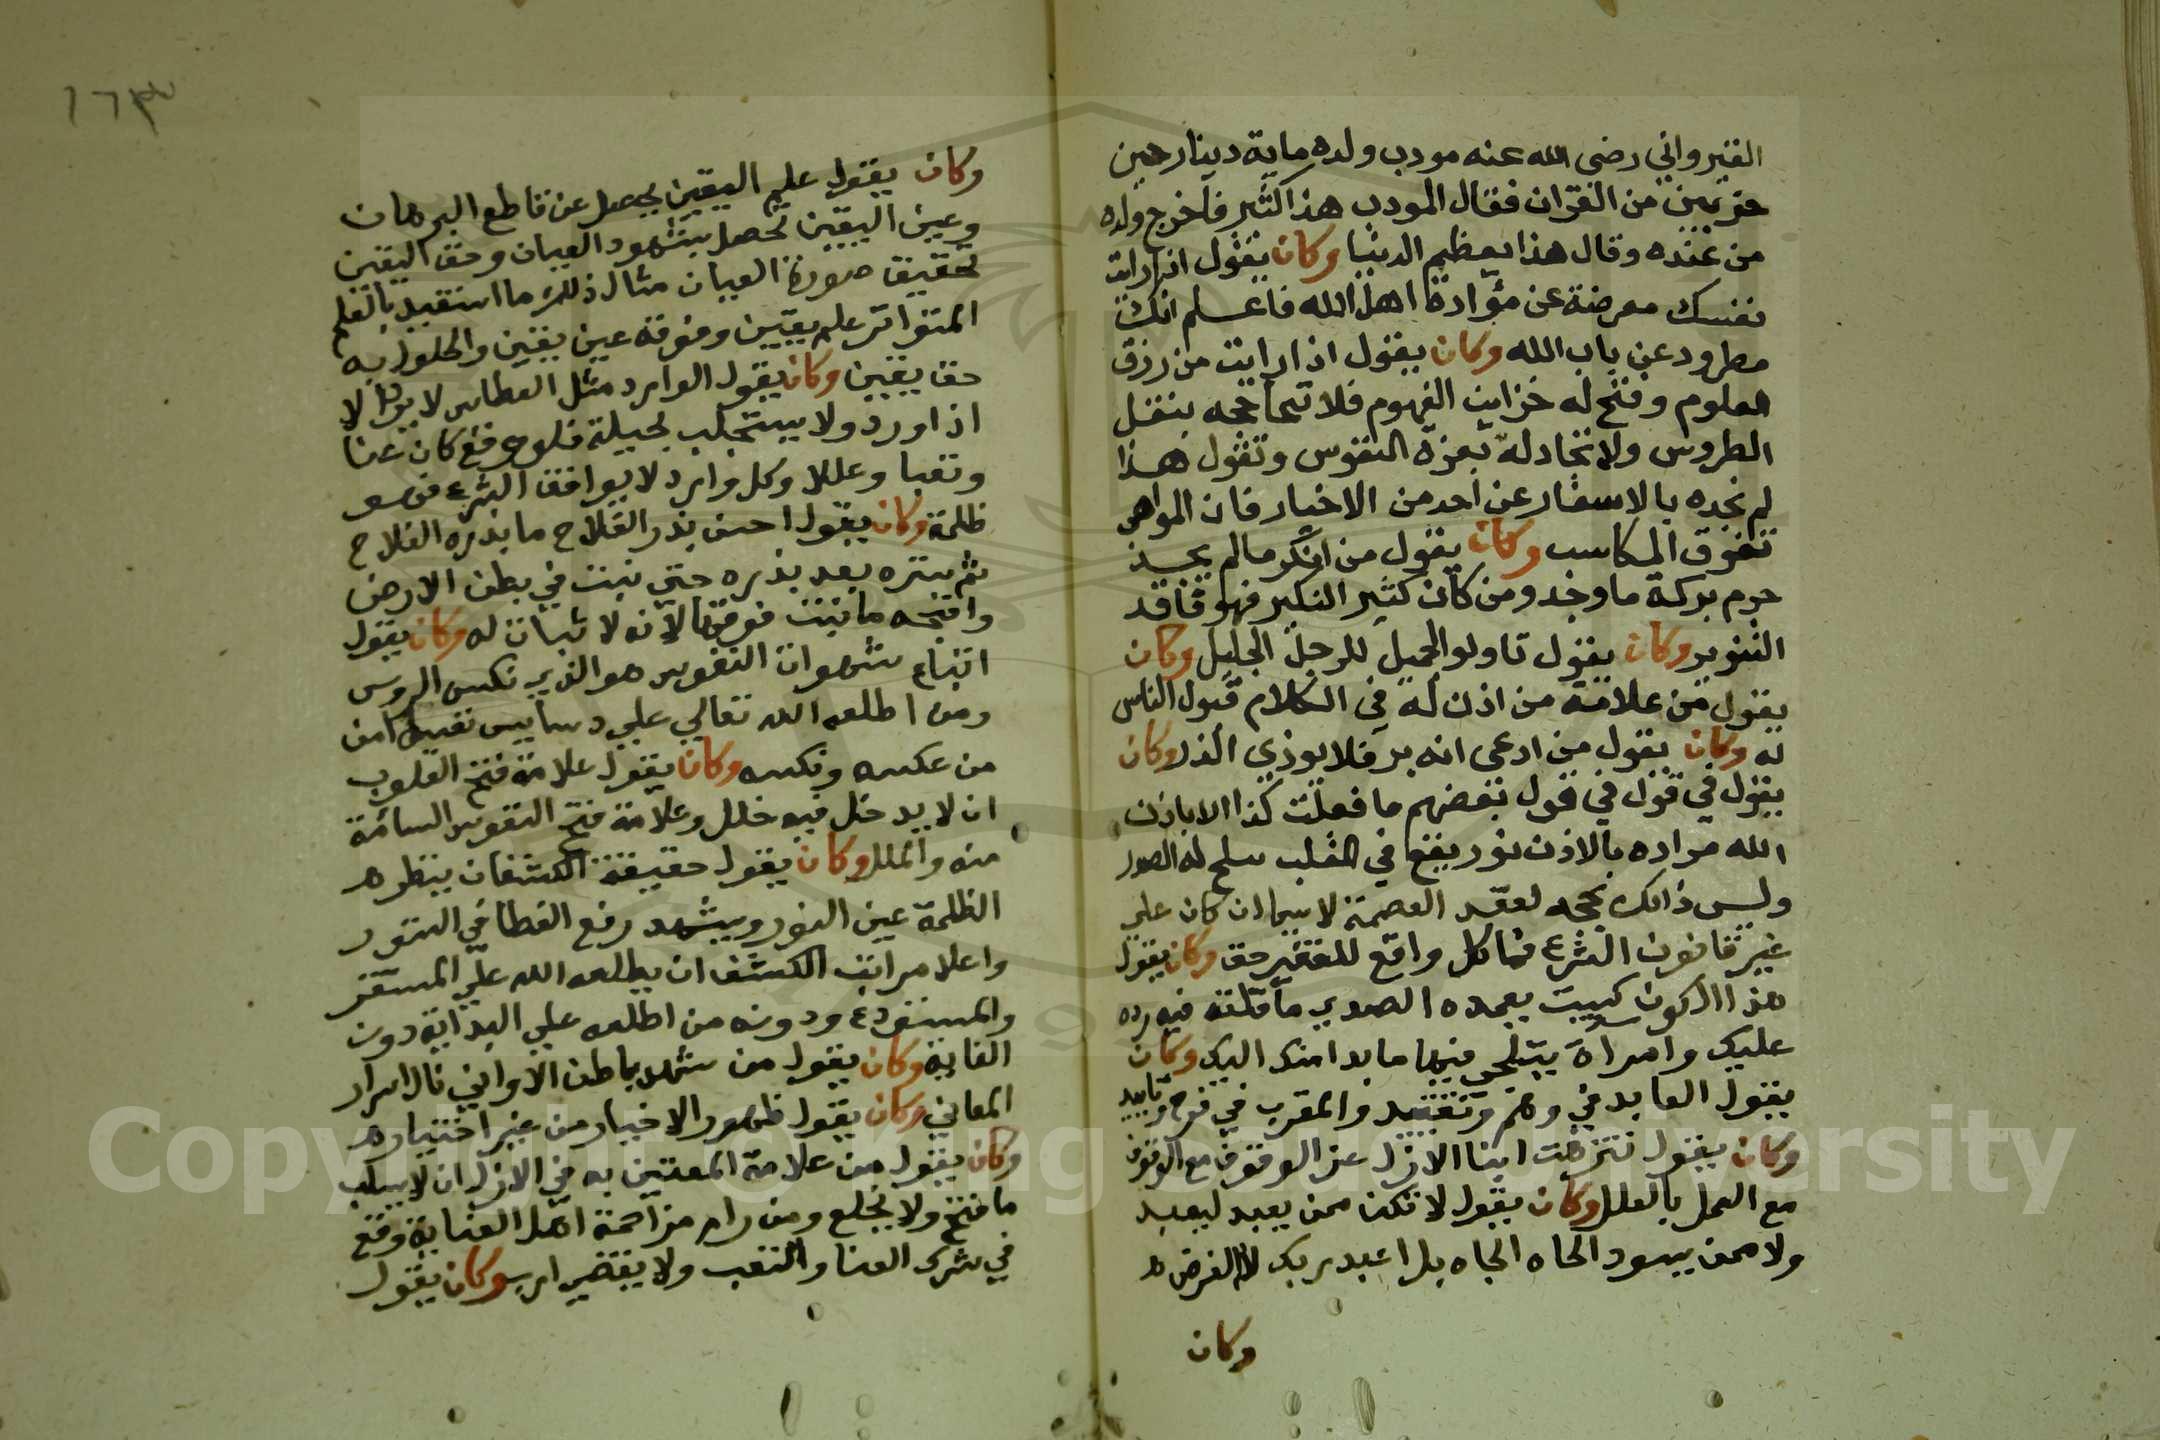 القيرواني رضى الله عنه مودب ولده ماية دينار حين
حزبين من القران فقال المودب هذا كثير فاخرج ولده
من عنده وقال هذا يعظم الدنيا وكان يقول اذا رايت
نفسك معرضة عن مؤادة اهل الله فاعلم انك
مطرود عن باب الله وكان يقول اذا رايت من رزق
العلوم وفتح له خزاين الفهوم فلا تحاججه بنقل
الطروس ولا تجادله بعزة النفوس وتقول هذا
لم نجده بالاسفار عن احد من الاخيار فان المواهب
تفوق المكاسب وكان يقول من انكر مالم يجد
حرم بركة ما وجد ومن كان كثير النكير فهو فاقد
التنوير وكان يقول تاولوا الجميل للرجل الجليل وكان
يقول من علامة من اذن له في الكلام قبول الناس
له وكان يقول من ادعى انه بر فلا يوذي الذر وكان
يقول في قول في قول بعضهم ما فعلت كذا الا باذن
الله مراده بالاذن نور يقع في القلب ينشلج له الصدر
وليس ذالك بحجه لعقد العصمة لاسيما ان كان علي
غير قانون الشرع فما كل واقع للفقير حق وكان يقول
هذا الكون كبيت بعمده الصدي ما قلته فيه رده
عليك وامراة يتجلى فيها ما بدا منك اليك وكان
يقول العابد في وهم وتفنيد والمقرب في فرح وتاييد
وكان يقول تنزهت ابنا الازل عن الوقوف مع الوقوف
مع العمل بالعلل وكان يقول لا تكن ممن يعبد ليعبد
ولا ممن يسود الجاه الجاه بل اعبد ربك لا لغرض
وكان
١٦٣
وكان يقول علم اليقين يحصل عن قاطع البرهان
وعين اليقين يحصل بشهود العيان وحق اليقين
تحقيق صورة العيان مثال ذلك ما استفيد بالعلم
المتواتر علم يقين وفوقه عين يقين والحلول به
حق يقين وكان يقول الوارد مثل العطاس لا يرد
اذا ورد ولا يستجلب بحيلة فلو وقع كان عنا
وتعبا وعللا وكل وارد لا يوافق الشرع فهو
ظلمة وكان يقول احسن بذر الفلاح ما بذره الفلاح
ثم ستره بعد بذره حتى نبت في بطن الارض
واقبحه ما نبت فوقها لانه لا ثبات له وكان يقول
اتباع شهوات النفوس هو الذي نكس الروس
ومن اطلعه الله تعالي علي دسايس نفسه امن
من عكسه ونكسه وكان يقول علامة فتح القلوب
ان لا يدخل فيه خلل وعلامة فتح النفوس السائمة
منه والملل وكان يقول حقيقة الكشف ان ينظر
الظلمة عين النور ويشهد رفع الغطا في الستور
واعلا مراتب الكشف ان يطلعه الله علي المستقر
والمستودع ودونه من اطلعه علي البداية دون
الغاية وكان يقول من شهد باطن الاواني نال اسرار
المعاني وكان يقول ظهور الاخيار من غير اختيارهم
وكان يقول من علامة المعتنين به في الازل ان لا يسلب
ما فتح ولا يخلع ومن رام مزاحمة اهل العناية وقع
في شرك العنا والتعب ولا يقضي ارب وكان يقول
Copyright © King Saud University